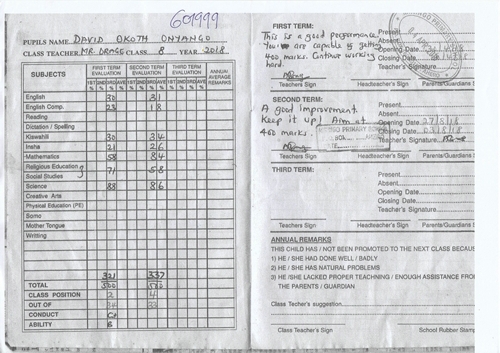 601999
PUPILS NAME DAVID OKOTH ONYANGO
CLASS TEACHER MR. DRAGE CLASS 8 YEAR 2018
SUBJECTS
FIRST TERM EVALUATION
SECOND TERM EVALUATION
THIRD TERM EVALUATION
ANNUAL AVERAGE REMARKS
1ST 2ND 3RD AVE 1ST 2ND 3RD AVE 1ST 2ND 3RD AVE
% % % % % % % % % % % %
English 30 31
English Comp. 23 18
Reading
Dictation / Spelling
Kiswahili 30 34
Insha 21 26
Mathematics 58 84
Religious Education
Social Studies 71 58
Science 88 86
Creative Arts
Physical Education (PE)
Somo
Mother Tongue
Writting
321 337
TOTAL 500 500
CLASS POSITION 2 4
OUT OF 33
CONDUCT C+
ABILITY B
FIRST TERM:
This is a good performance.
You are capable of getting
400 marks. Continue working
hard.
Present
Absent
Opening Date
Closing Date
Teacher's Signature
Teachers Sign Headteacher's Sign Parents/Guardians S
SECOND TERM:
A good improvement.
Keep it up! Aim at
400 marks.
Present
Absent
Opening Date 27/8/18
Closing Date 03/8/18
Teacher's Signature
PRIMARY SCH
BOX
DATE
Teachers Sign Headteacher's Sign Parents/Guardians S
THIRD TERM:
Present
Absent
Opening Date
Closing Date
Teacher's Signature
Teachers Sign Headteacher's Sign Parents/Guardians S
ANNUAL REMARKS
THIS CHILD HAS / NOT BEEN PROMOTED TO THE NEXT CLASS BECAUS
1) HE / SHE HAD DONE WELL / BADLY
2) HE / SHE HAS NATURAL PROBLEMS
3) HE / SHE LACKED PROPER TEACHNING / ENOUGH ASSISTANCE FROM
THE PARENTS / GUARDIAN
Class Techer's suggestion
Class Teacher's Sign School Rubber Stamp